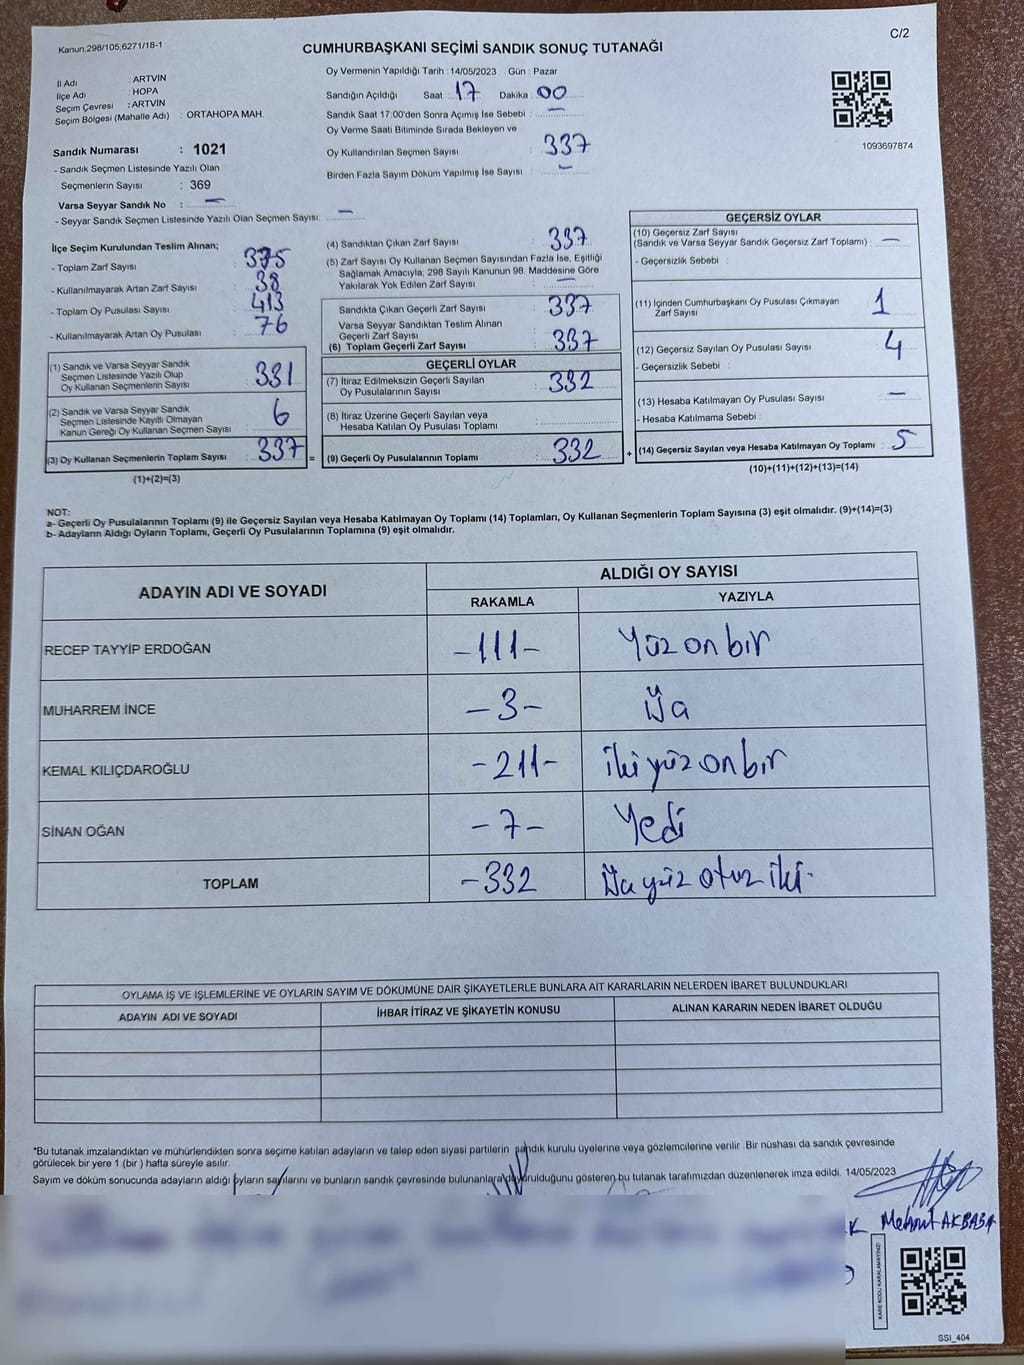 Kanun:298/105,6271/18-1
C/2
CUMHURBAŞKANI SEÇİMİ SANDIK SONUÇ TUTANAĞI
İl Adı : ARTVİN
İlçe Adı : HOPA
Seçim Çevresi : ARTVİN
Seçim Bölgesi (Mahalle Adı) : ORTAHOPA MAH.
Sandık Numarası : 1021
- Sandık Seçmen Listesinde Yazılı Olan
Seçmenlerin Sayısı : 369
Varsa Seyyar Sandık No : —
- Seyyar Sandık Seçmen Listesinde Yazılı Olan Seçmen Sayısı: —
Oy Vermenin Yapıldığı Tarih : 14/05/2023 Gün : Pazar
Sandığın Açıldığı Saat 17 Dakika 00
Sandık Saat 17.00'den Sonra Açımış İse Sebebi : —
Oy Verme Saati Bitiminde Sırada Bekleyen ve
Oy Kullandırılan Seçmen Sayısı : 337
Birden Fazla Sayım Döküm Yapılmış İse Sayısı : —
1093697874
İlçe Seçim Kurulundan Teslim Alınan;
- Toplam Zarf Sayısı : 375
- Kullanılmayarak Artan Zarf Sayısı : 38
- Toplam Oy Pusulası Sayısı : 413
- Kullanılmayarak Artan Oy Pusulası : 76
(1) Sandık ve Varsa Seyyar Sandık
Seçmen Listesinde Yazılı Olup
Oy Kullanan Seçmenlerin Sayısı : 331
(2) Sandık ve Varsa Seyyar Sandık
Seçmen Listesinde Kayıtlı Olmayan
Kanun Gereği Oy Kullanan Seçmen Sayısı : 6
(3) Oy Kullanan Seçmenlerin Toplam Sayısı : 337 =
(1)+(2)=(3)
(4) Sandıktan Çıkan Zarf Sayısı : 337
(5) Zarf Sayısı Oy Kullanan Seçmen Sayısından Fazla İse, Eşitliği
Sağlamak Amacıyla; 298 Sayılı Kanunun 98. Maddesine Göre
Yakılarak Yok Edilen Zarf Sayısı : —
Sandıkta Çıkan Geçerli Zarf Sayısı : 337
Varsa Seyyar Sandıktan Teslim Alınan
Geçerli Zarf Sayısı
(6) Toplam Geçerli Zarf Sayısı : 337
GEÇERLİ OYLAR
(7) İtiraz Edilmeksizin Geçerli Sayılan
Oy Pusulalarının Sayısı : 332
(8) İtiraz Üzerine Geçerli Sayılan veya
Hesaba Katılan Oy Pusulaları Toplamı :
(9) Geçerli Oy Pusulalarının Toplamı : 332 +
GEÇERSİZ OYLAR
(10) Geçersiz Zarf Sayısı
(Sandık ve Varsa Seyyar Sandık Geçersiz Zarf Toplamı) : —
- Geçersizlik Sebebi :
(11) İçinden Cumhurbaşkanı Oy Pusulası Çıkmayan
Zarf Sayısı : 1
(12) Geçersiz Sayılan Oy Pusulası Sayısı : 4
- Geçersizlik Sebebi :
(13) Hesaba Katılmayan Oy Pusulası Sayısı : —
- Hesaba Katılmama Sebebi :
(14) Geçersiz Sayılan veya Hesaba Katılmayan Oy Toplamı : 5
(10)+(11)+(12)+(13)=(14)
NOT:
a- Geçerli Oy Pusulalarının Toplamı (9) ile Geçersiz Sayılan veya Hesaba Katılmayan Oy Toplamı (14) Toplamları, Oy Kullanan Seçmenlerin Toplam Sayısına (3) eşit olmalıdır. (9)+(14)=(3)
b- Adayların Aldığı Oyların Toplamı, Geçerli Oy Pusulalarının Toplamına (9) eşit olmalıdır.
ADAYIN ADI VE SOYADI
ALDIĞI OY SAYISI
RAKAMLA YAZIYLA
RECEP TAYYİP ERDOĞAN -111- Yüz on bir
MUHARREM İNCE -3- Üç
KEMAL KILIÇDAROĞLU -211- iki yüz on bir
SİNAN OĞAN -7- Yedi
TOPLAM -332 Üç yüz otuz iki.
OYLAMA İŞ VE İŞLEMLERİNE VE OYLARIN SAYIM VE DÖKÜMÜNE DAİR ŞİKAYETLERLE BUNLARA AİT KARARLARIN NELERDEN İBARET BULUNDUKLARI
ADAYIN ADI VE SOYADI İHBAR İTİRAZ VE ŞİKAYETİN KONUSU ALINAN KARARIN NEDEN İBARET OLDUĞU
*Bu tutanak imzalandıktan ve mühürlendikten sonra seçime katılan adayların ve talep eden siyasi partilerin sandık kurulu üyelerine veya gözlemcilerine verilir. Bir nüshası da sandık çevresinde
görülecek bir yere 1 (bir ) hafta süreyle asılır.
Sayım ve döküm sonucunda adayların aldığı oyların sayılarını ve bunların sandık çevresinde bulunanlara duyurulduğunu gösteren bu tutanak tarafımızdan düzenlenerek imza edildi. 14/05/2023
Mehmet AKBABA
KARE KODU KARALAMAYINIZ!
SSI_404